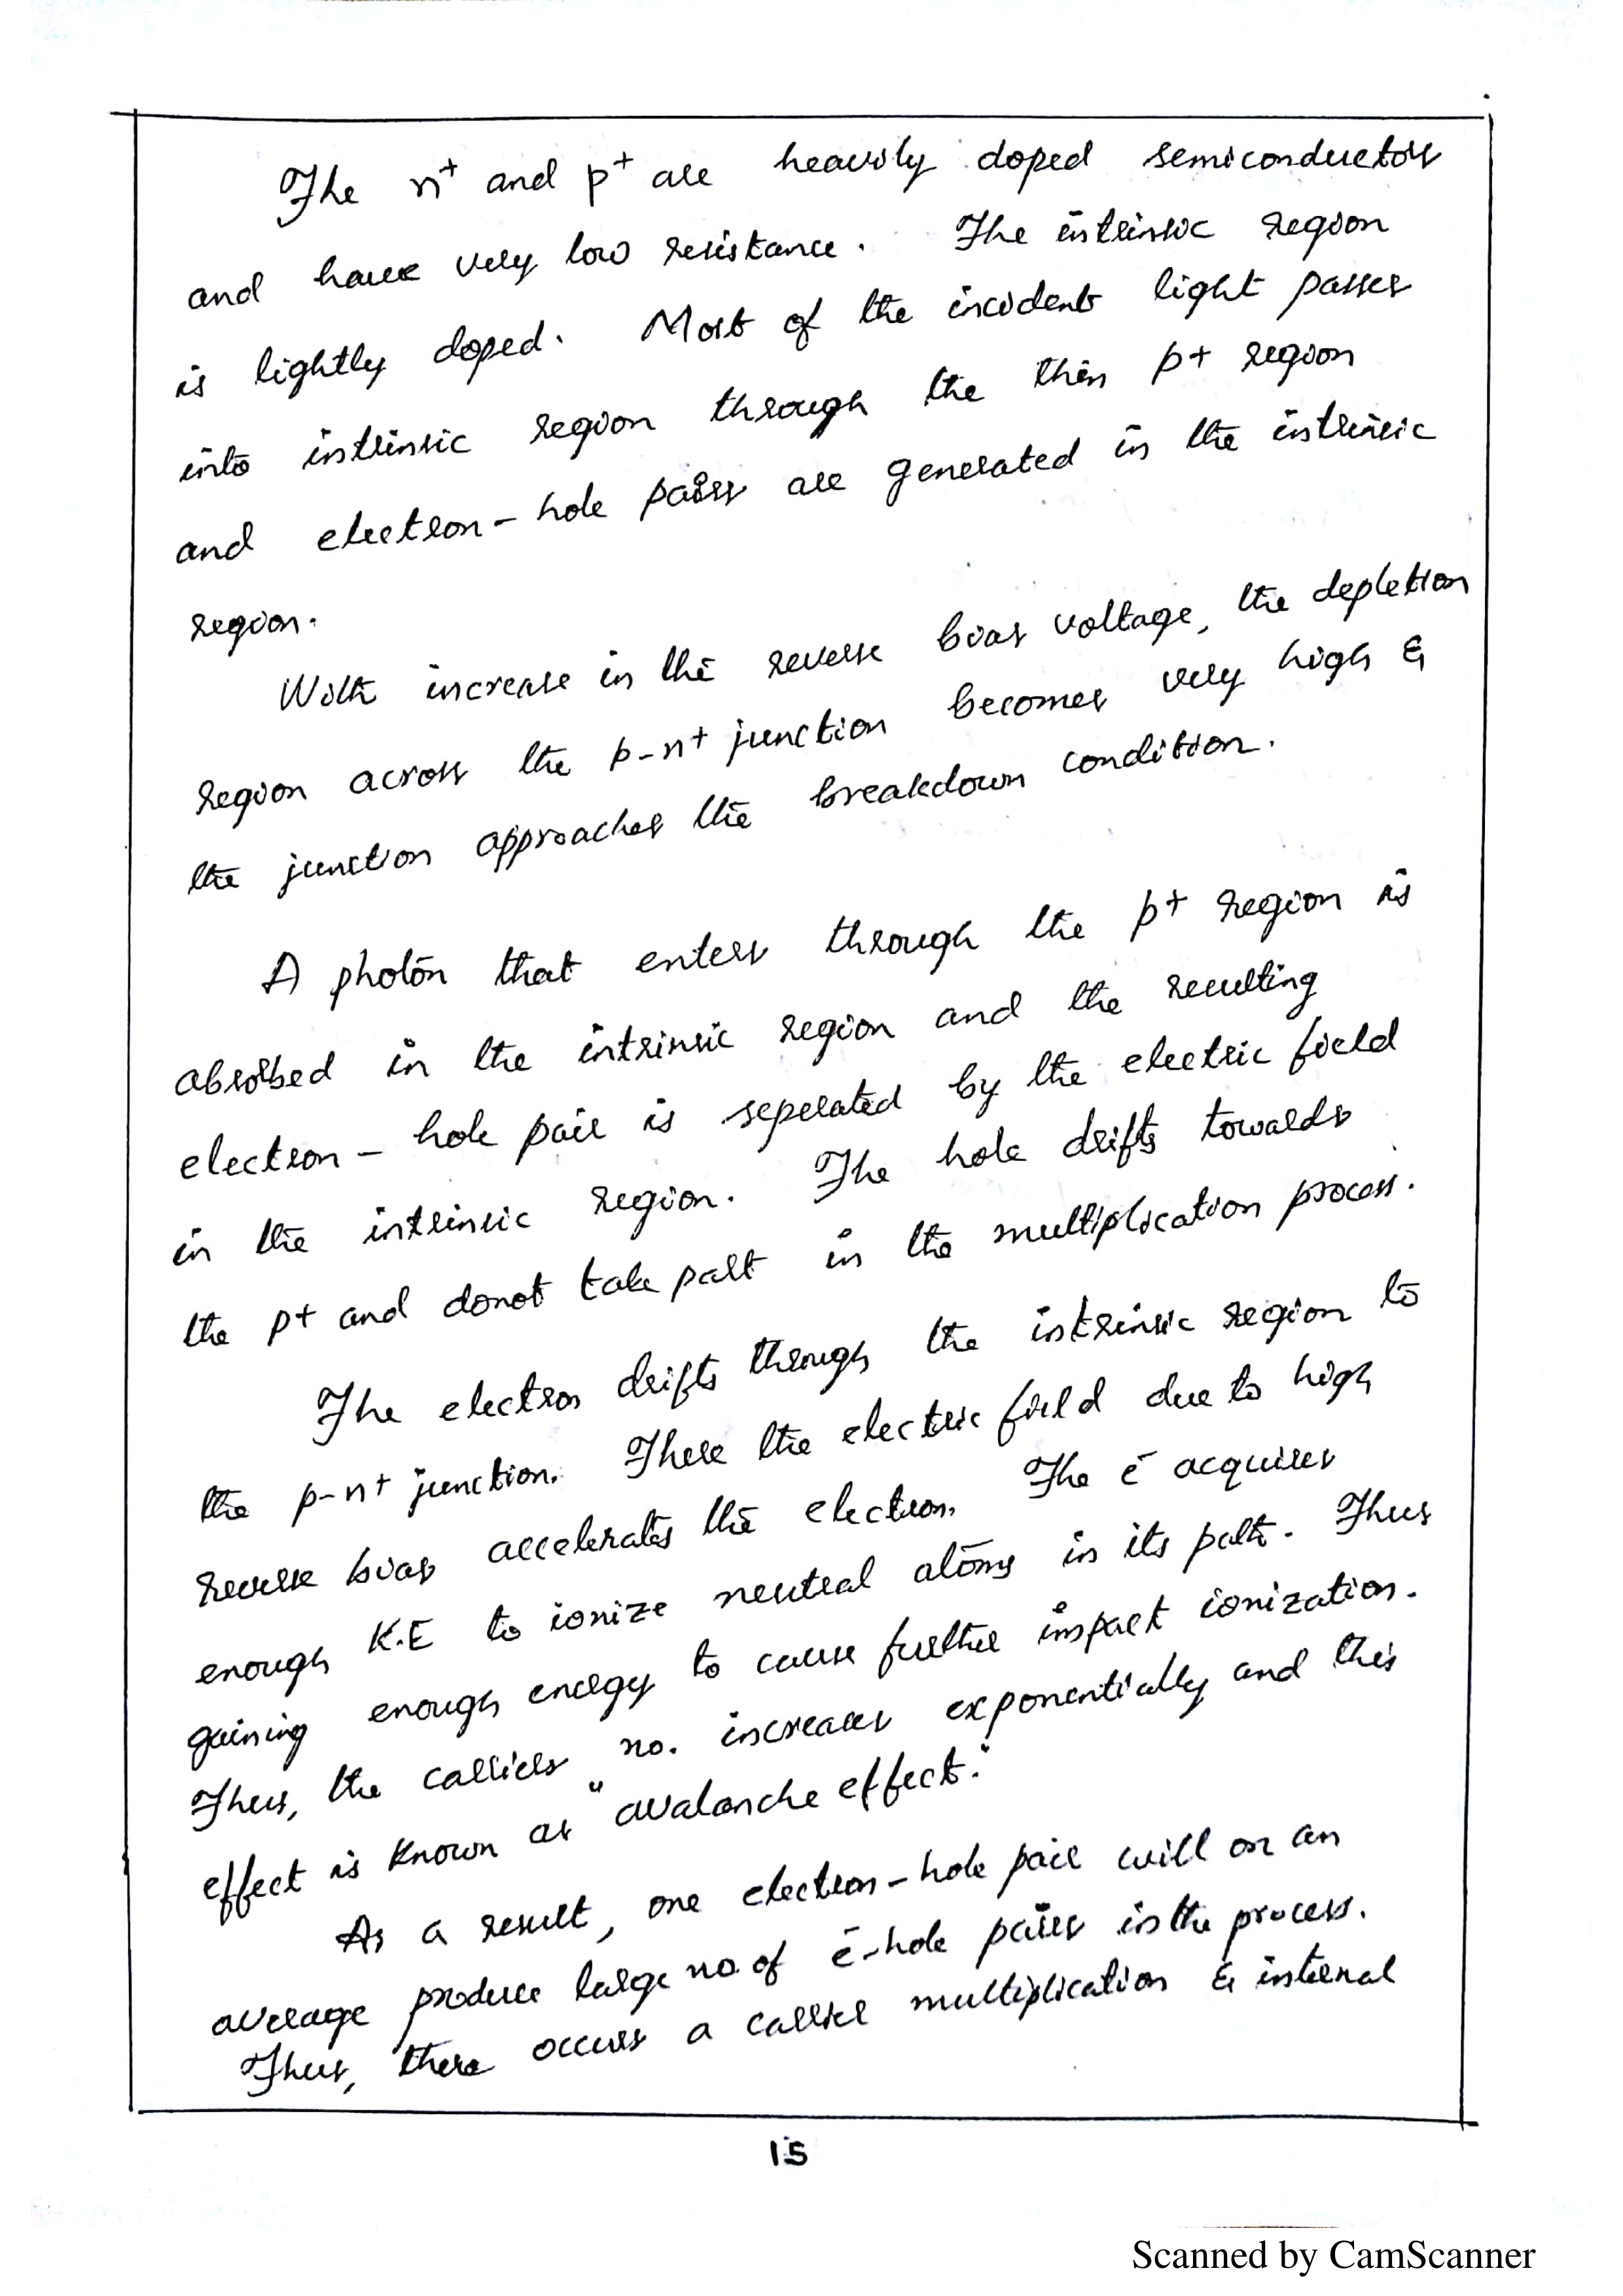 The n+ and p+ are heavily doped semiconductors
and have very low resistance. The intrinsic region
is lightly doped. Most of the incident light passes
into intrinsic region through the thin p+ region
and electron - hole pairs are generated in the intrinsic
region.
With increase in the reverse bias voltage, the depletion
region across the p-n+ junction becomes very high &
the junction approaches the breakdown condition.
A photon that enters through the p+ region is
absorbed in the intrinsic region and the resulting
electron - hole pair is seperated by the electric field
in the intrinsic region. The hole drifts towards
the p+ and donot take part in the multiplication process.
The electron drifts through the intrinsic region to
the p-n+ junction. There the electric field due to high
reverse bias accelerates the electron. The ē acquires
enough K.E to ionize neutral atoms in its path. Thus
gaining enough energy to cause further impact ionization.
Thus, the carriers no. increases exponentially and this
effect is known as "avalanche effect."
As a result, one electron - hole pair will on an
average produce large no. of ē-hole pairs in the process.
Thus, there occurs a carrier multiplication & internal
15
Scanned by CamScanner